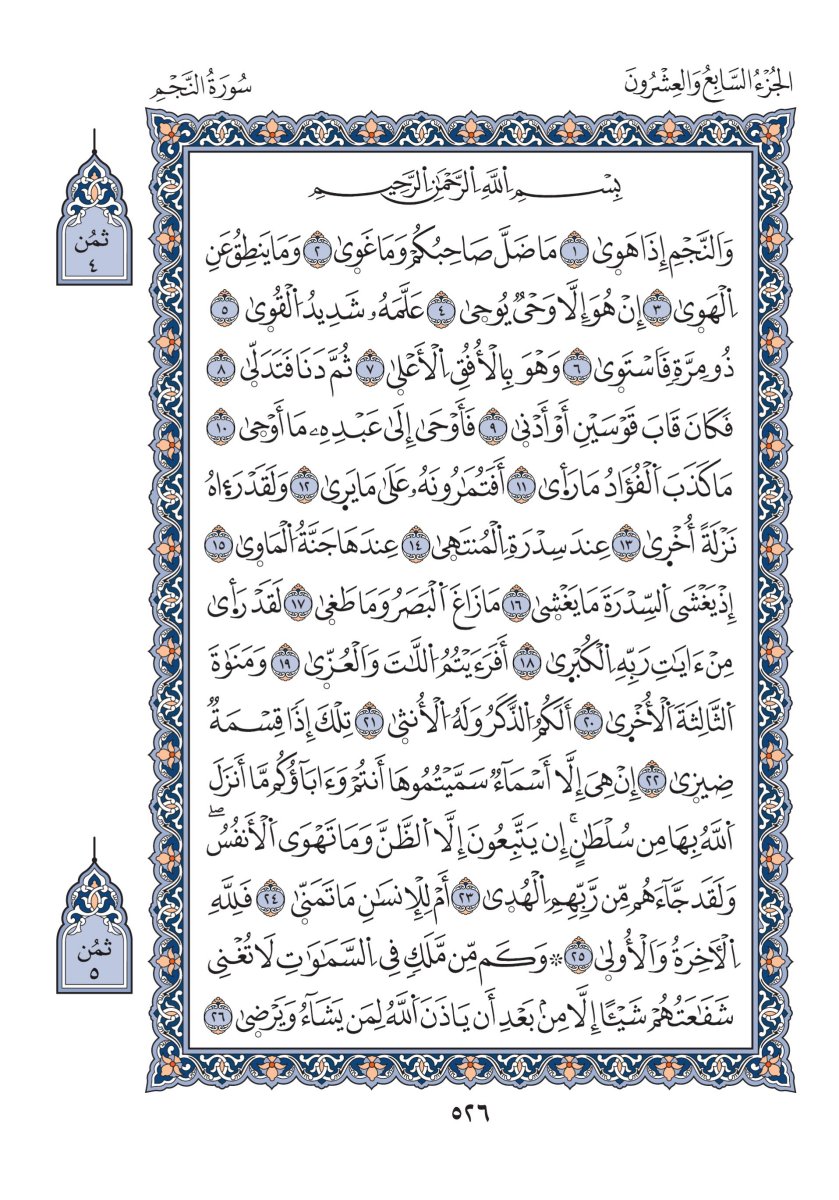 الجُزْءُ السَّابِعُ وَالعِشْرُونَ
سُورَةُ النَّجْمِ
بِسْمِ اِ۬للَّهِ اِ۬لرَّحْمَٰنِ اِ۬لرَّحِيمِ
وَالنَّجْمِ إِذَا هَوِىٰ ١ مَا ضَلَّ صَاحِبُكُمْ وَمَا غَوِىٰ ٢ وَمَا يَنطِقُ عَنِ
اِ۬لْهَوِىٰ ٣ إِنْ هُوَ إِلَّا وَحْيٌ يُوحِىٰ ٤ عَلَّمَهُۥ شَدِيدُ اُ۬لْقُوِىٰ ٥
ذُو مِرَّةٍ فَاسْتَوِىٰ ٦ وَهْوَ بِالْأُفُقِ اِ۬لْأَعْلِىٰ ٧ ثُمَّ دَنَا فَتَدَلِّىٰ ٨
فَكَانَ قَابَ قَوْسَيْنِ أَوْ أَدْنِىٰ ٩ فَأَوْحَىٰ إِلَىٰ عَبْدِهِۦ مَا أَوْحِىٰ ١٠
مَا كَذَبَ اَ۬لْفُؤَادُ مَا رَأِىٰ ١١ أَفَتُمَٰرُونَهُۥ عَلَىٰ مَا يَرِىٰ ١٢ وَلَقَدْ رَءِاهُ
نَزْلَةً أُخْرِىٰ ١٣ عِندَ سِدْرَةِ اِ۬لْمُنتَهِىٰ ١٤ عِندَهَا جَنَّةُ اُ۬لْمَاوِىٰ ١٥
إِذْ يَغْشَى اَ۬لسِّدْرَةَ مَا يَغْشِىٰ ١٦ مَا زَاغَ اَ۬لْبَصَرُ وَمَا طَغِىٰ ١٧ لَقَدْ رَأِىٰ
مِنْ ءَايَٰتِ رَبِّهِ اِ۬لْكُبْرِىٰ ١٨ أَفَرَءَيْتُمُ اُ۬للَّٰتَ وَالْعُزِّىٰ ١٩ وَمَنَوٰةَ
اَ۬لثَّالِثَةَ اَ۬لْأُخْرِىٰ ٢٠ أَلَكُمُ اُ۬لذَّكَرُ وَلَهُ اُ۬لْأُنثِىٰ ٢١ تِلْكَ إِذًا قِسْمَةٌ
ضِيزِىٰ ٢٢ إِنْ هِيَ إِلَّا أَسْمَآءٌ سَمَّيْتُمُوهَا أَنتُمْ وَءَابَآؤُكُم مَّا أَنزَلَ
اَ۬للَّهُ بِهَا مِن سُلْطَٰنٍۚ إِن يَتَّبِعُونَ إِلَّا اَ۬لظَّنَّ وَمَا تَهْوَى اَ۬لْأَنفُسُۖ
وَلَقَد جَّآءَهُم مِّن رَّبِّهِمِ اِ۬لْهُدِىٰ ٢٣ أَمْ لِلْإِنسَٰنِ مَا تَمَنِّىٰ ٢٤ فَلِلَّهِ
اِ۬لْأٓخِرَةُ وَالْأُولِىٰ ٢٥ ۞ وَكَم مِّن مَّلَكٍ فِي اِ۬لسَّمَٰوَٰتِ لَا تُغْنِى
شَفَٰعَتُهُمْ شَيْـًٔا إِلَّا مِنۢ بَعْدِ أَن يَاذَنَ اَ۬للَّهُ لِمَن يَشَآءُ وَيَرْضِىٰ ٢٦
ثُمُن
٤
ثُمُن
٥
٥٢٦